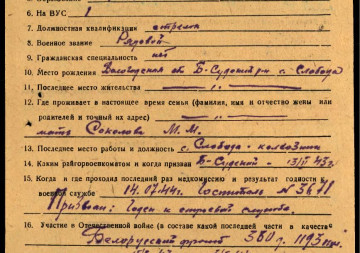 6. На ВУС 1
7. Должностная квалификация стрелок
8. Военное звание Рядовой
9. Гражданская специальность нет
10. Место рождения Вологодская об Б-Судский р-н с. Слобода
11. Последнее место жительства — " — " —
12. Где проживает в настоящее время семья (фамилия, имя и отчество жены или
родителей и точный их адрес) — " — " —
мать Соколова М. М.
13. Последнее место работы и должность с. Слобода - колхозник
14. Каким райгорвоенкоматом и когда призван Б-Судский - 13/II 43 г.
15. Когда и где проходил последний раз медкомиссию и результат годности к
военной службе 14.07.44 г. Госпиталь N 3678
Признан: Годен к строевой службе.
16. Участие в Отечественной войне (в составе какой последней части в качестве
Белорусский фронт 360 д. 1193